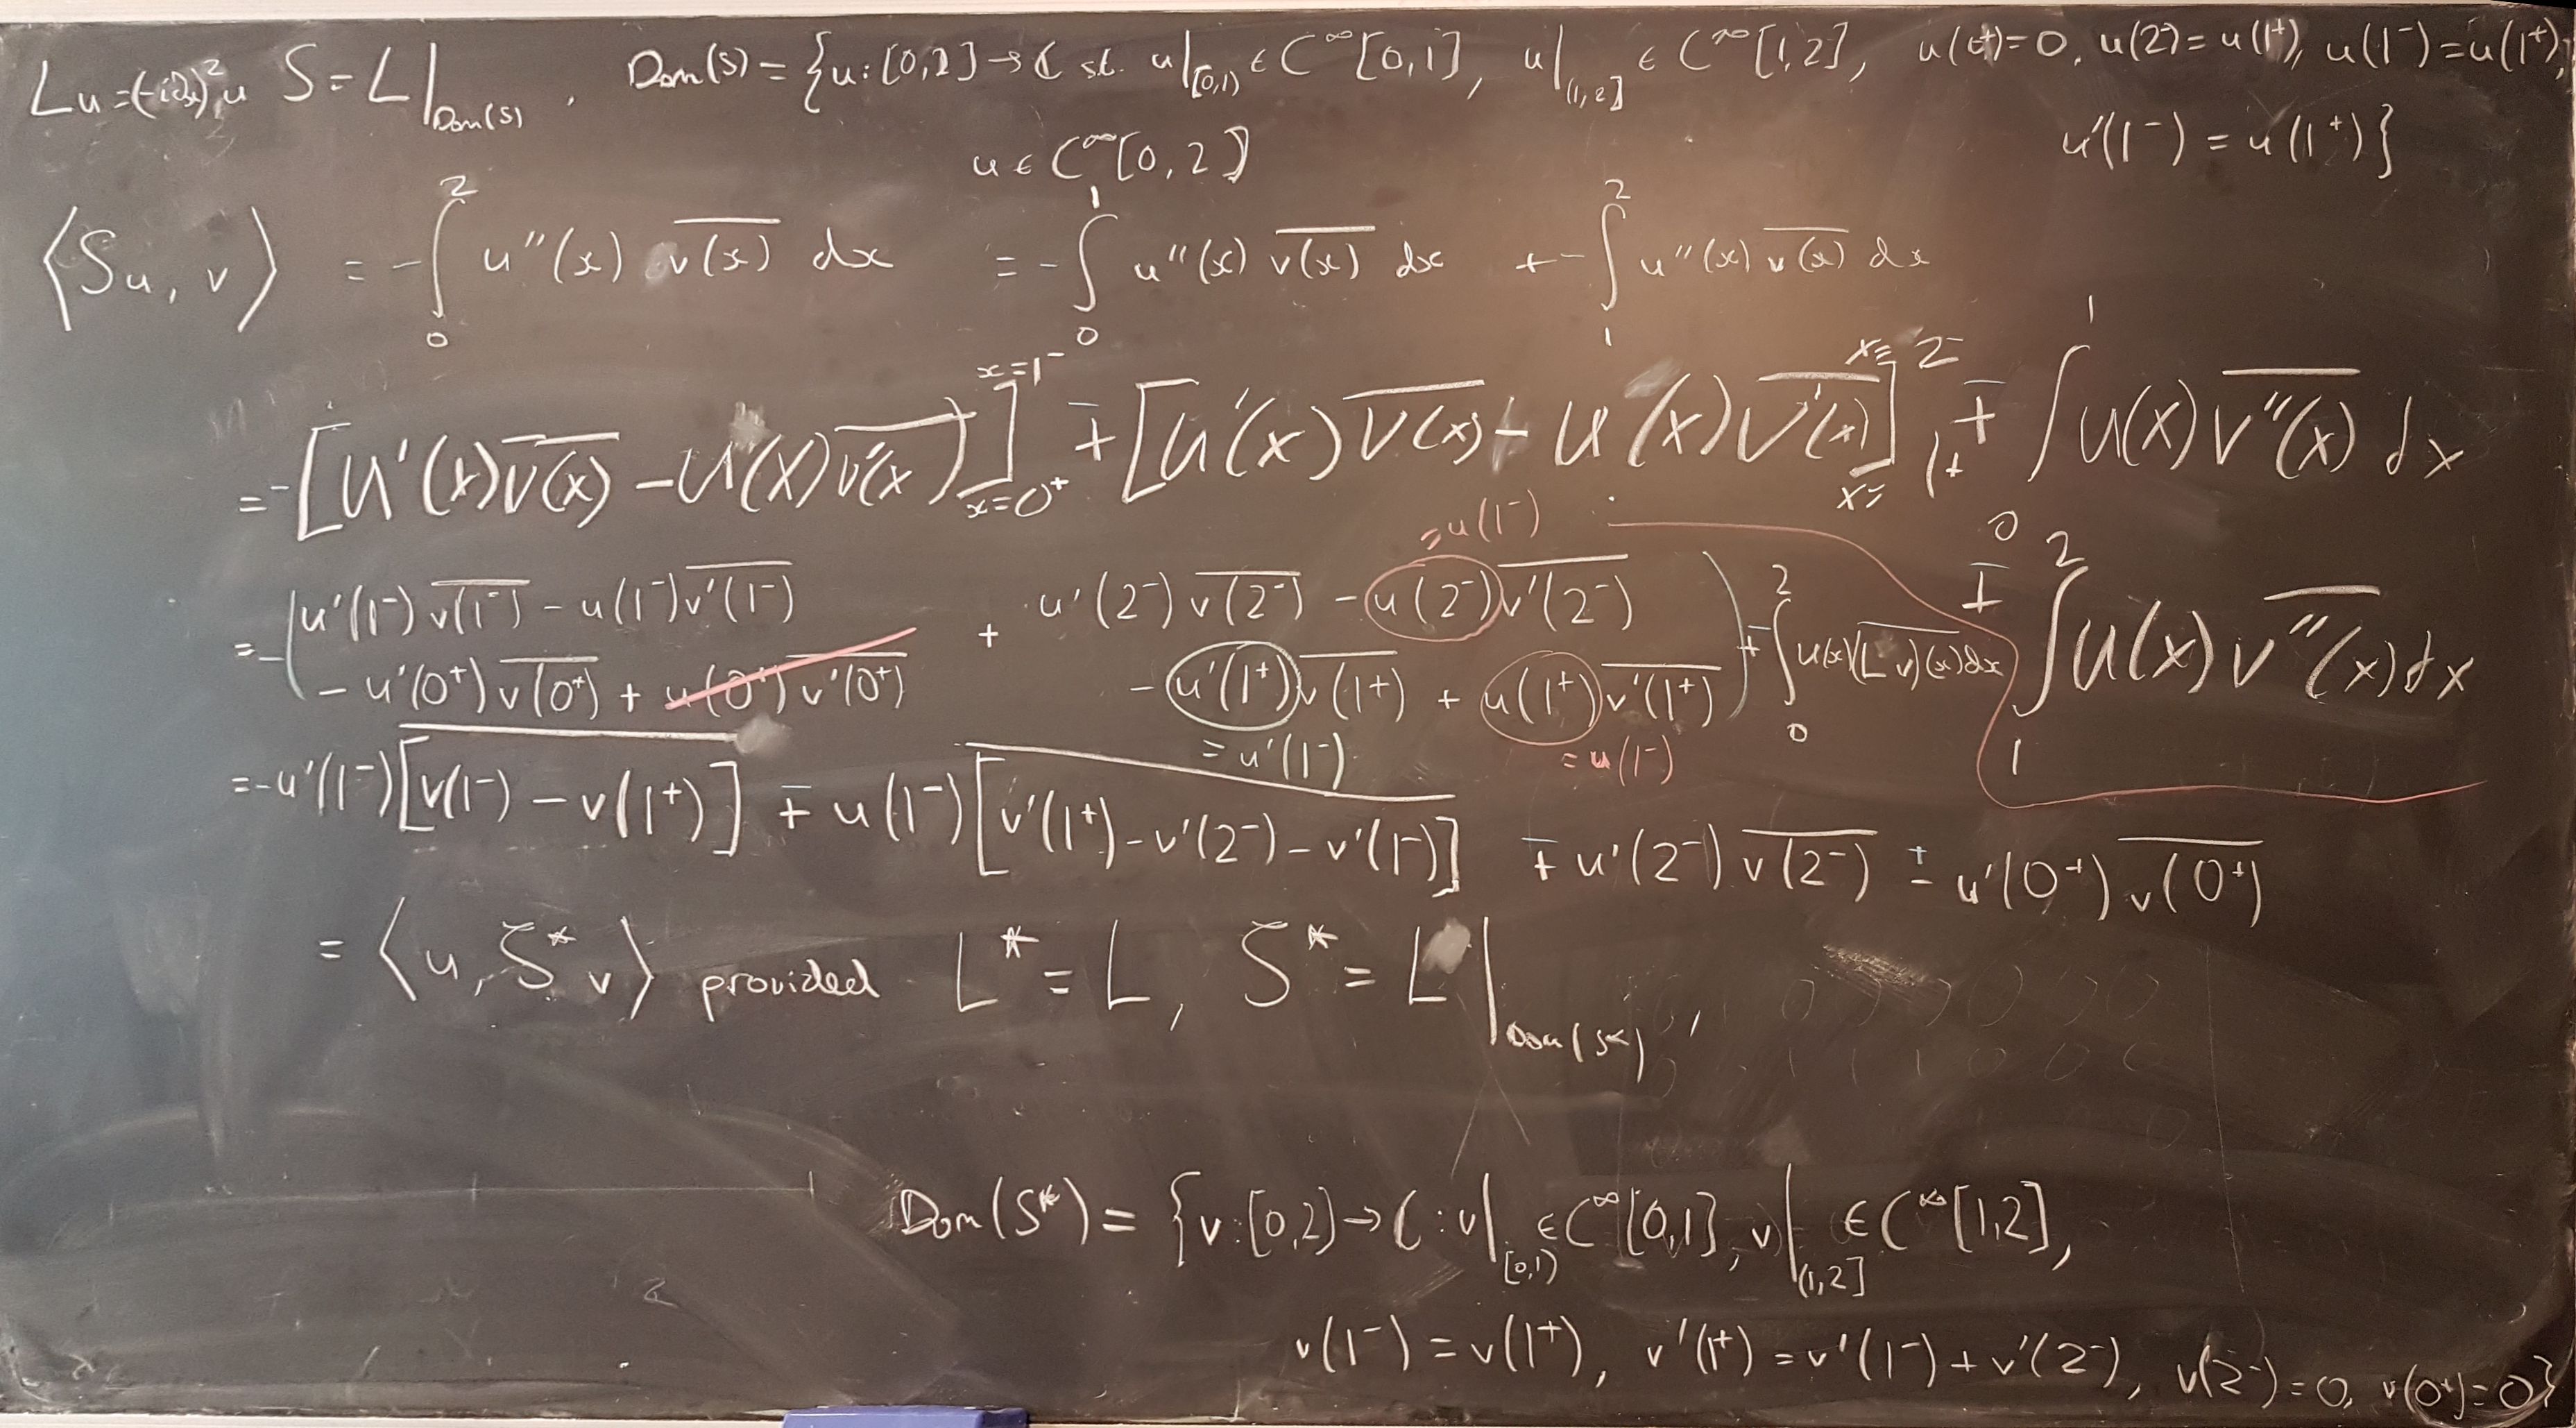 Lu = (-i∂x)²u   S = L|_Dom(S) ,   Dom(S) = {u : [0,2] → ℂ st. u|_[0,1) ∈ C^∞[0,1], u|_(1,2] ∈ C^∞[1,2], u(0⁺)=0, u(2⁻)=u(1⁺), u(1⁻)=u(1⁺),
u'(1⁻) = u'(1⁺)}
u ∈ C^∞[0,2]
⟨Su, v⟩ = -∫₀² u''(x) \overline{v(x)} dx = -∫₀¹ u''(x) \overline{v(x)} dx + -∫₁² u''(x) \overline{v(x)} dx
= -[u'(x)\overline{v(x)} - u(x)\overline{v'(x)}]_{x=0⁺}^{x=1⁻} ∓ [u'(x)\overline{v(x)} - u(x)\overline{v'(x)}]_{x=1⁺}^{x=2⁻} ∓ ∫₀¹ u(x)\overline{v''(x)} dx
∓ ∫₁² u(x)\overline{v''(x)} dx
= u(1⁻)
= -(u'(1⁻)\overline{v(1⁻)} - u(1⁻)\overline{v'(1⁻)} + u'(2⁻)\overline{v(2⁻)} - u(2⁻)\overline{v'(2⁻)}
- u'(0⁺)\overline{v(0⁺)} + u(0⁺)\overline{v'(0⁺)} - u'(1⁺)\overline{v(1⁺)} + u(1⁺)\overline{v'(1⁺)}) + ∫₀² u(x)\overline{(Lv)(x)}dx
= u'(1⁻) = u(1⁻)
= -u'(1⁻)\overline{[v(1⁻) - v(1⁺)]} ∓ u(1⁻)\overline{[v'(1⁺) - v'(2⁻) - v'(1⁻)]} ∓ u'(2⁻)\overline{v(2⁻)} ± u'(0⁺)\overline{v(0⁺)}
= ⟨u, S*v⟩ provided L* = L, S* = L|_Dom(S*) ,
Dom(S*) = {v : [0,2) → ℂ : v|_[0,1) ∈ C^∞[0,1], v|_(1,2] ∈ C^∞[1,2],
v(1⁻) = v(1⁺), v'(1⁺) = v'(1⁻) + v'(2⁻), v(2⁻) = 0, v(0⁺) = 0}